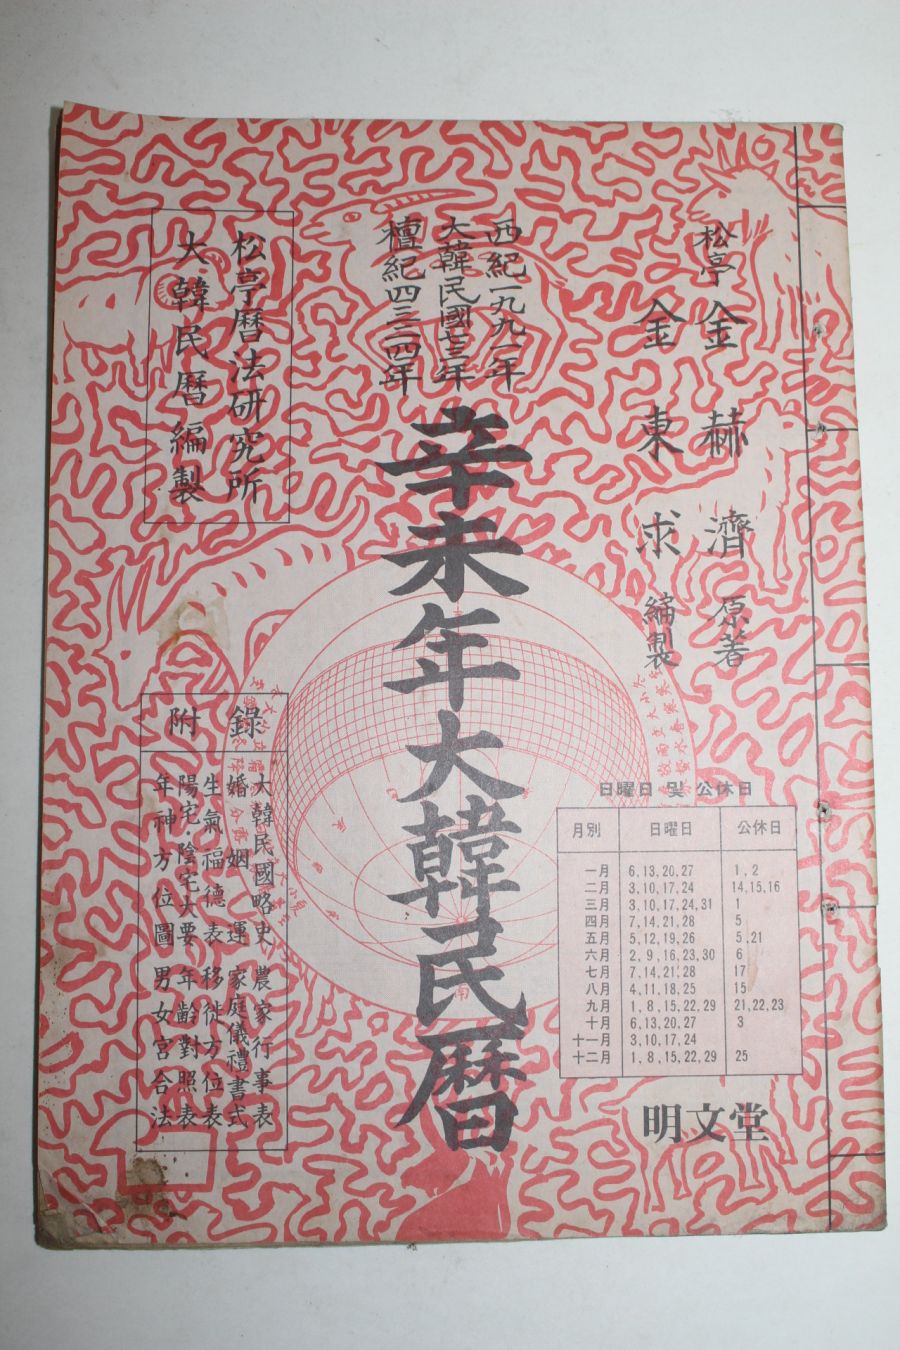 松亭 金赫濟 原著
金東求 編製
西紀一九九一年
大韓民國七三年
檀紀四三二四年
辛未年大韓民曆
松亭曆法硏究所
大韓民曆編製
附錄
大韓民國略史 農家行事表
婚姻運 家庭儀禮書式
生氣福德表 移徙方位表
陽宅·陰宅大要 年齡對照表
年神方位圖 男女宮合法
日曜日 및 公休日
月別 日曜日 公休日
一月 6,13,20,27 1,2
二月 3,10,17,24 14,15,16
三月 3,10,17,24,31 1
四月 7,14,21,28 5
五月 5,12,19,26 5,21
六月 2,9,16,23,30 6
七月 7,14,21,28 17
八月 4,11,18,25 15
九月 1,8,15,22,29 21,22,23
十月 6,13,20,27 3
十一月 3,10,17,24
十二月 1,8,15,22,29 25
明文堂